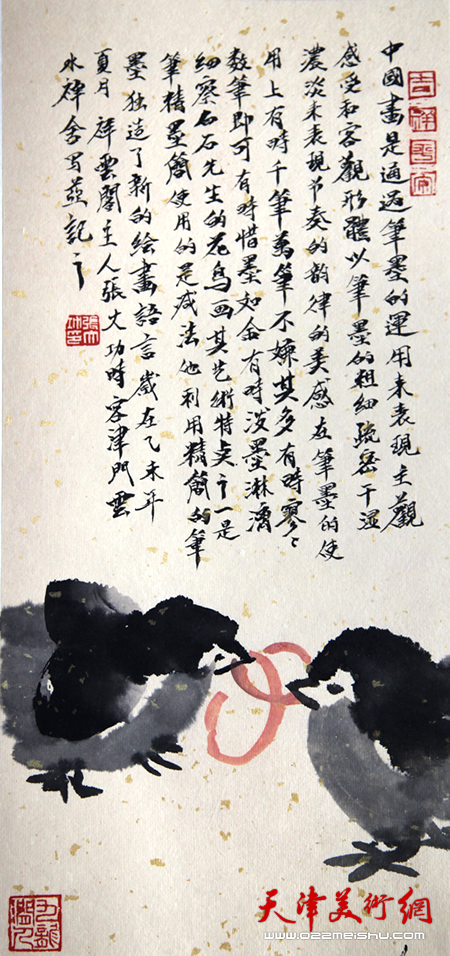 中國畫是通過筆墨的運用来表現主觀
感受和客觀形體以筆墨的粗細疏密干湿
濃淡来表現节奏的韵律的美感在筆墨的使
用上有時千筆萬筆不嫌其多有時寥〻
数筆即可有時惜墨如金有時泼墨淋漓
細察石先生的花鸟画其艺術特点之一是
筆精墨簡使用的是减法他利用精簡的筆
墨独造了新的绘畫語言歲在乙未年
夏月祥雲閣主人張大功時客津門雲
水禅舍呵燕記之
天津美術網
www.022meishu.com